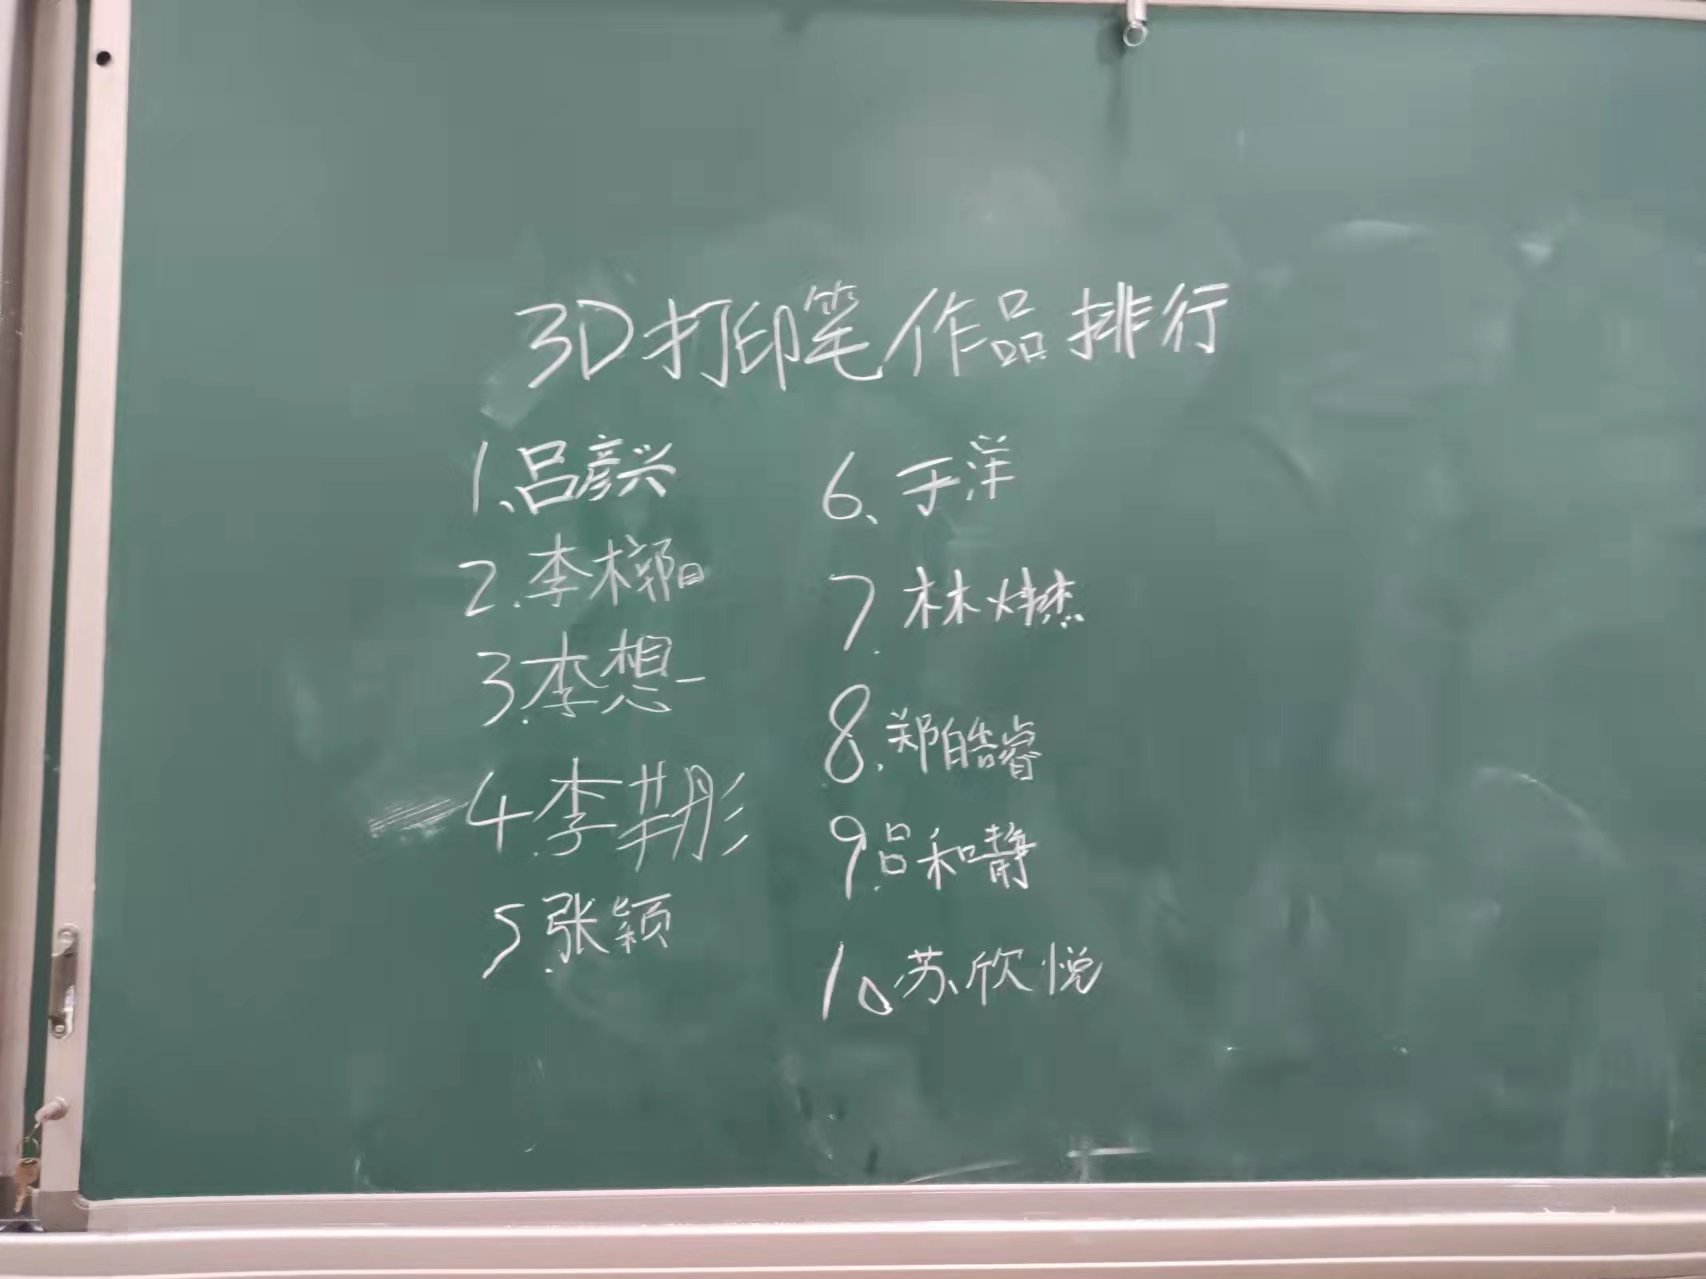 3D打印笔作品排行
1、吕彦兴
2.李
3.李想
4.李彤
5.张颖
6、于洋
7.林
8.郑皓睿
9.吕和静
10、苏欣悦